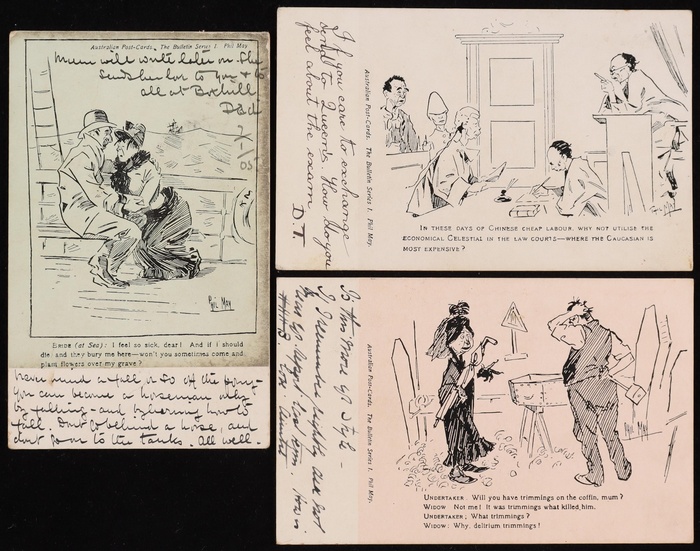 Australian Post-Cards. The Bulletin Series 1. Phil May
Mum will write later on. She
sends her love to you & to
all at Boxhill
Dad
05
PHIL MAY
BRIDE (at Sea): I feel so sick, dear! And if I should
die and they bury me here—won't you sometimes come and
plant flowers over my grave?
have had a fall or so off the
You can become a horseman only
by falling - and by learning how to
fall. Don't go behind a horse, and
don't go on to the tanks. All well.
If you care to exchange
send to Queenie. How do you
feel about the exam
D.T.
Australian Post-Cards. The Bulletin Series 1. Phil May.
PHIL MAY
IN THESE DAYS OF CHINESE CHEAP LABOUR, WHY NOT UTILISE THE
ECONOMICAL CELESTIAL IN THE LAW COURTS—WHERE THE CAUCASIAN IS
MOST EXPENSIVE?
Is this more up style -
I
Australian Post-Cards. The Bulletin Series 1. Phil May.
PHIL MAY
UNDERTAKER: Will you have trimmings on the coffin, mum?
WIDOW: Not me! It was trimmings what killed him.
UNDERTAKER: What trimmings?
WIDOW: Why, delirium trimmings!